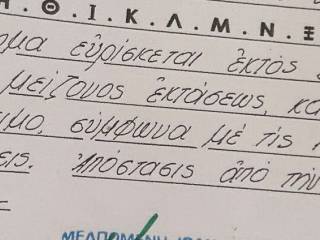 Η . Θ . Ι . Κ . Λ . Μ . Ν . Ξ
μα εὑρίσκεται ἐκτὸς
μείζονος ἐκτάσεως, κα
ιμο, σύμφωνα μέ τίς
εις. Ἀπόστασις ἀπό τήν
ΜΕΛΠΟΜΕΝΗ